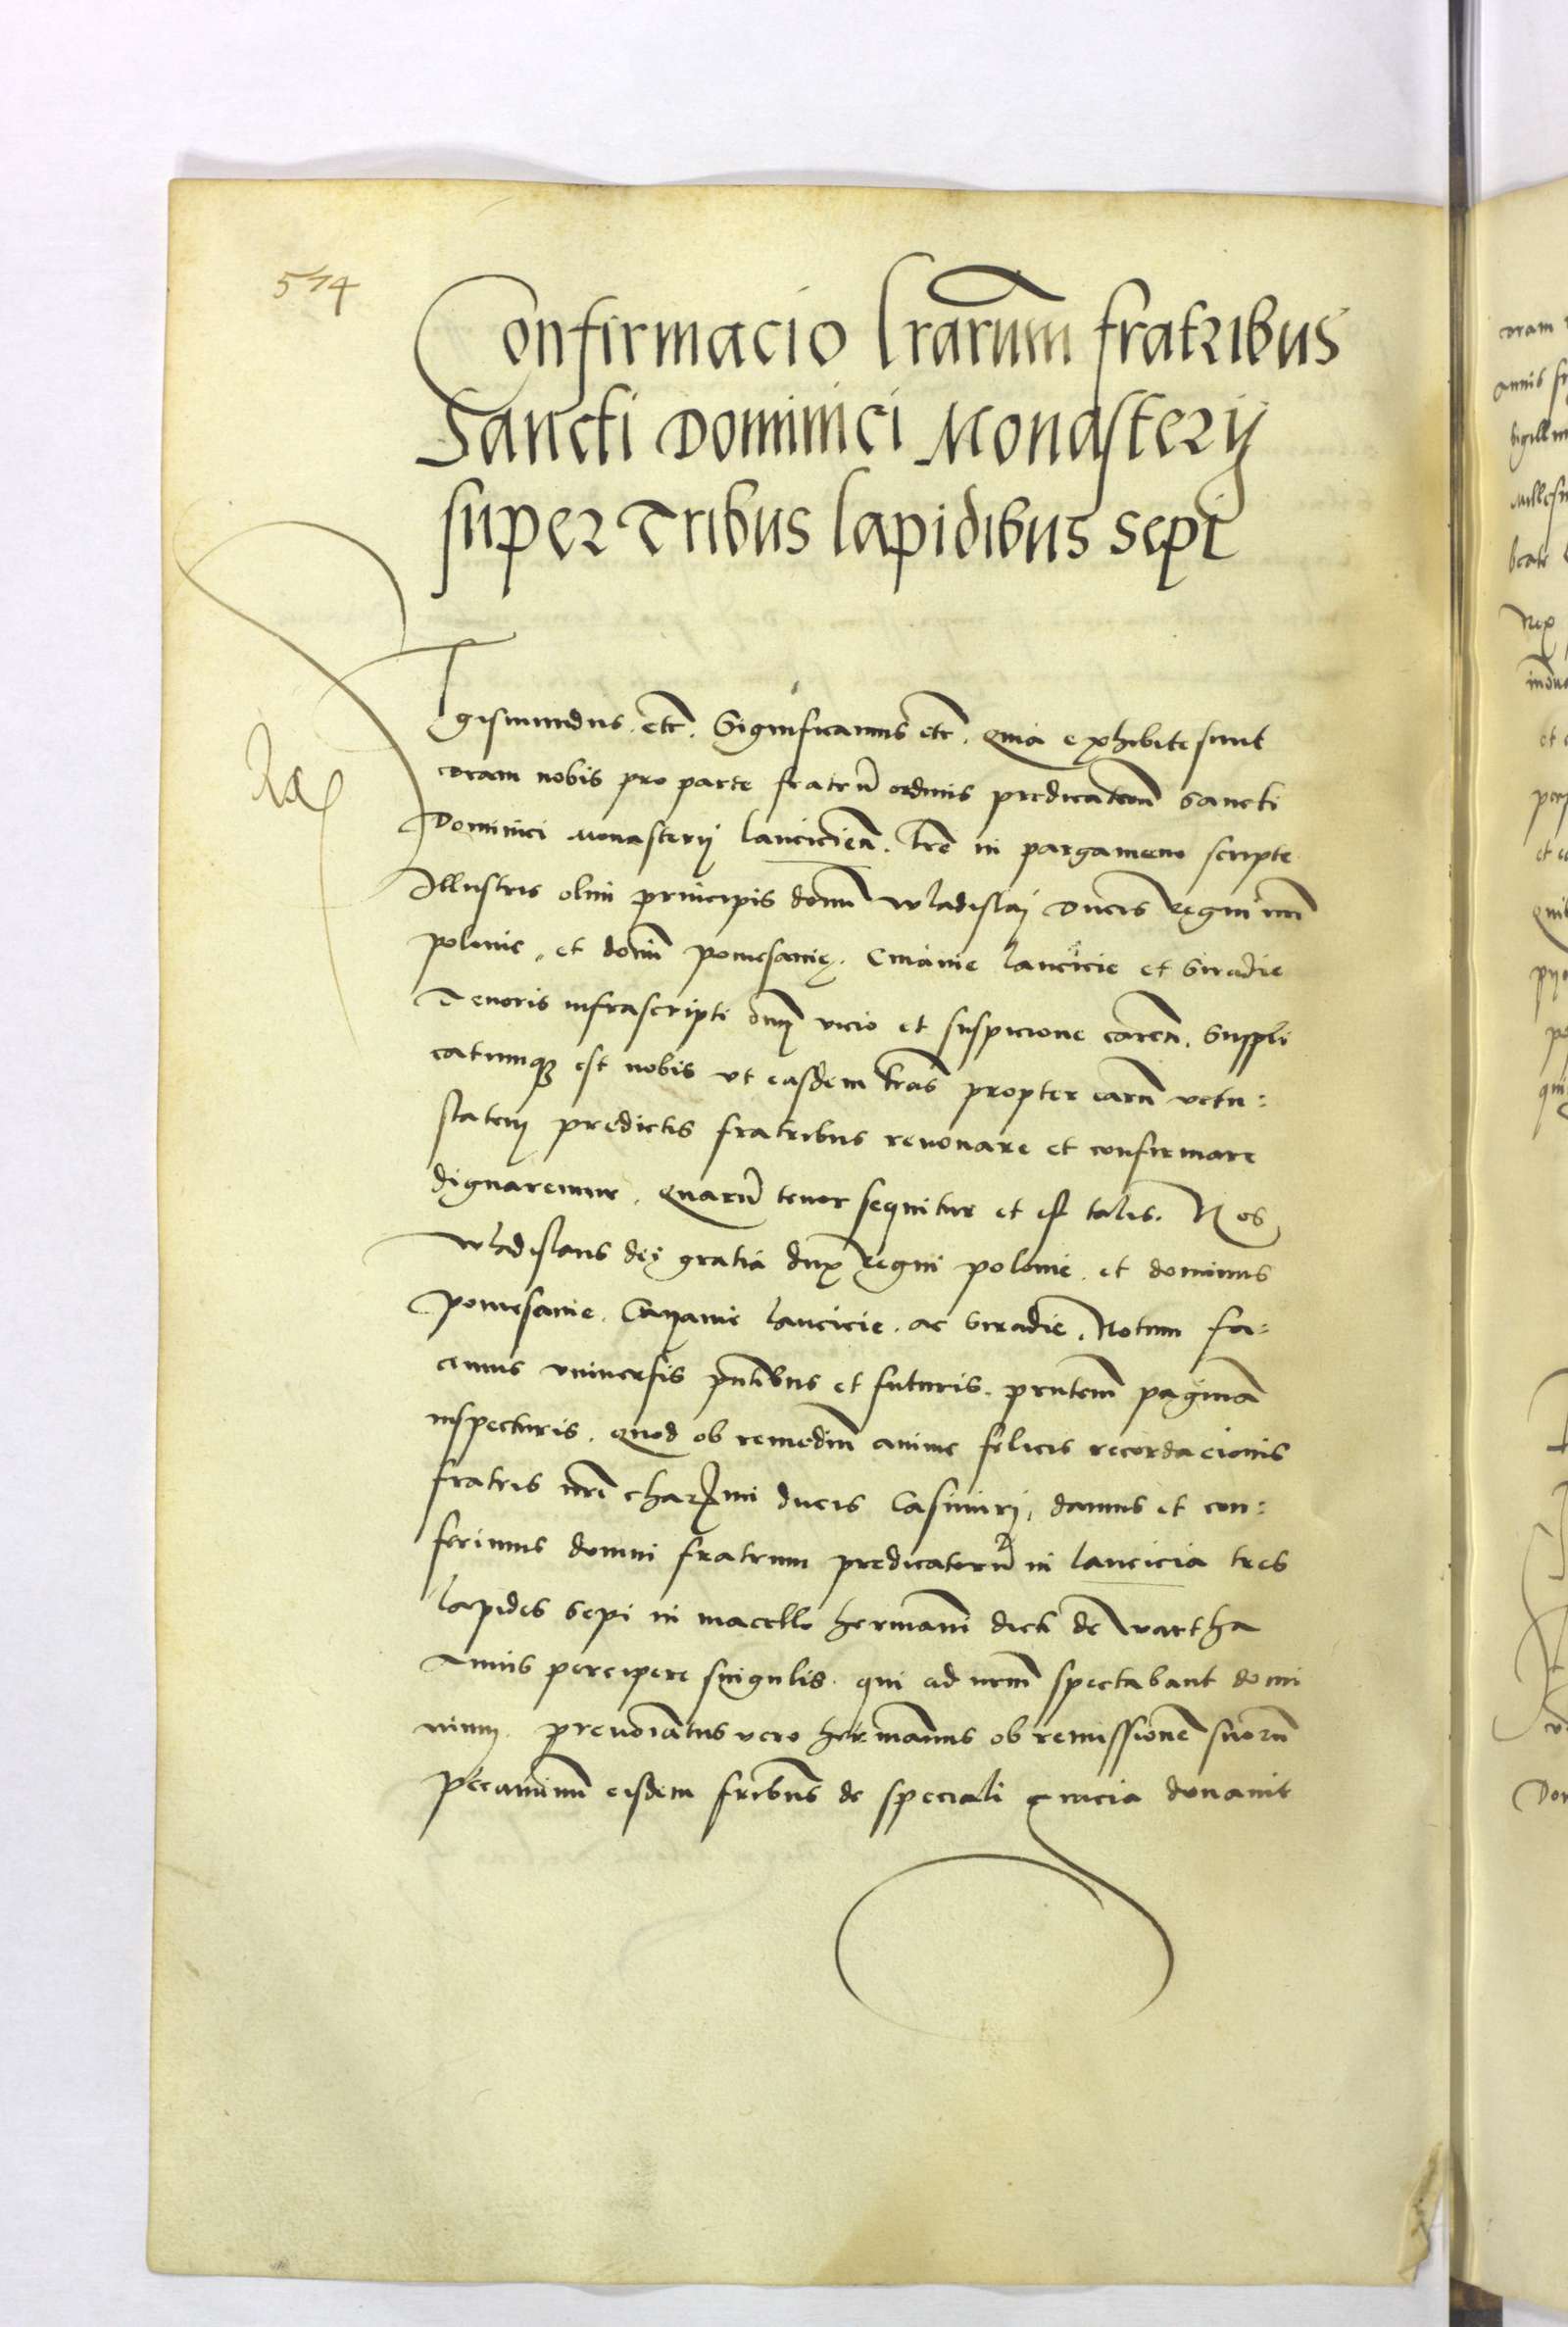 574
Confirmacio lrarum fratribus
Sancti Dominici Monasterij
super Tribus lapidibus sepi
Sigismundus. etc. Significamus etc. Quia exhibite sunt
coram nobis pro parte fratrũ ordinis predicatorũ sancti
Dominici Monasterij lancicien̄. lrē in pargameno scripte
Illustris olim principis domĩ Wladislaj Ducis Regni nrĩ
polonie. et domĩ pomesanię. Cuiauie lancicie et Siradie
Tenoris infrascripti omĩ vicio et suspicione careñ. Suppli
catumq̃ est nobis vt easdem lrãs propter earũ vetu:
statem predictis fratribus renouare et confirmare
dignaremur. Quarũ tenor sequitur et est talis. Nos
Wladislaus dei gratia dux Regni polonie. et dominus
pomesanie. Cuyauie lancicie. ac Siradie. Notum fa:
cimus vniuersis pñtibus et futuris. pñtem paginã
inspecturis. Quod ob remediũ anime felicis recordacionis
fratris nrĩ charmi ducis Casimirj, damus et con:
ferimus domui fratrum predicatorũ in lancicia tres
lapides sepi in macello hermanni dicti de Wartha
Annis percipere singulis. qui ad nrm̃ spectabant domi
nium. prenoĩatus vero hermannus ob remissionẽ suorũ
peccaminũ eisdem frĩbus de speciali gracia donauit
coram
annis